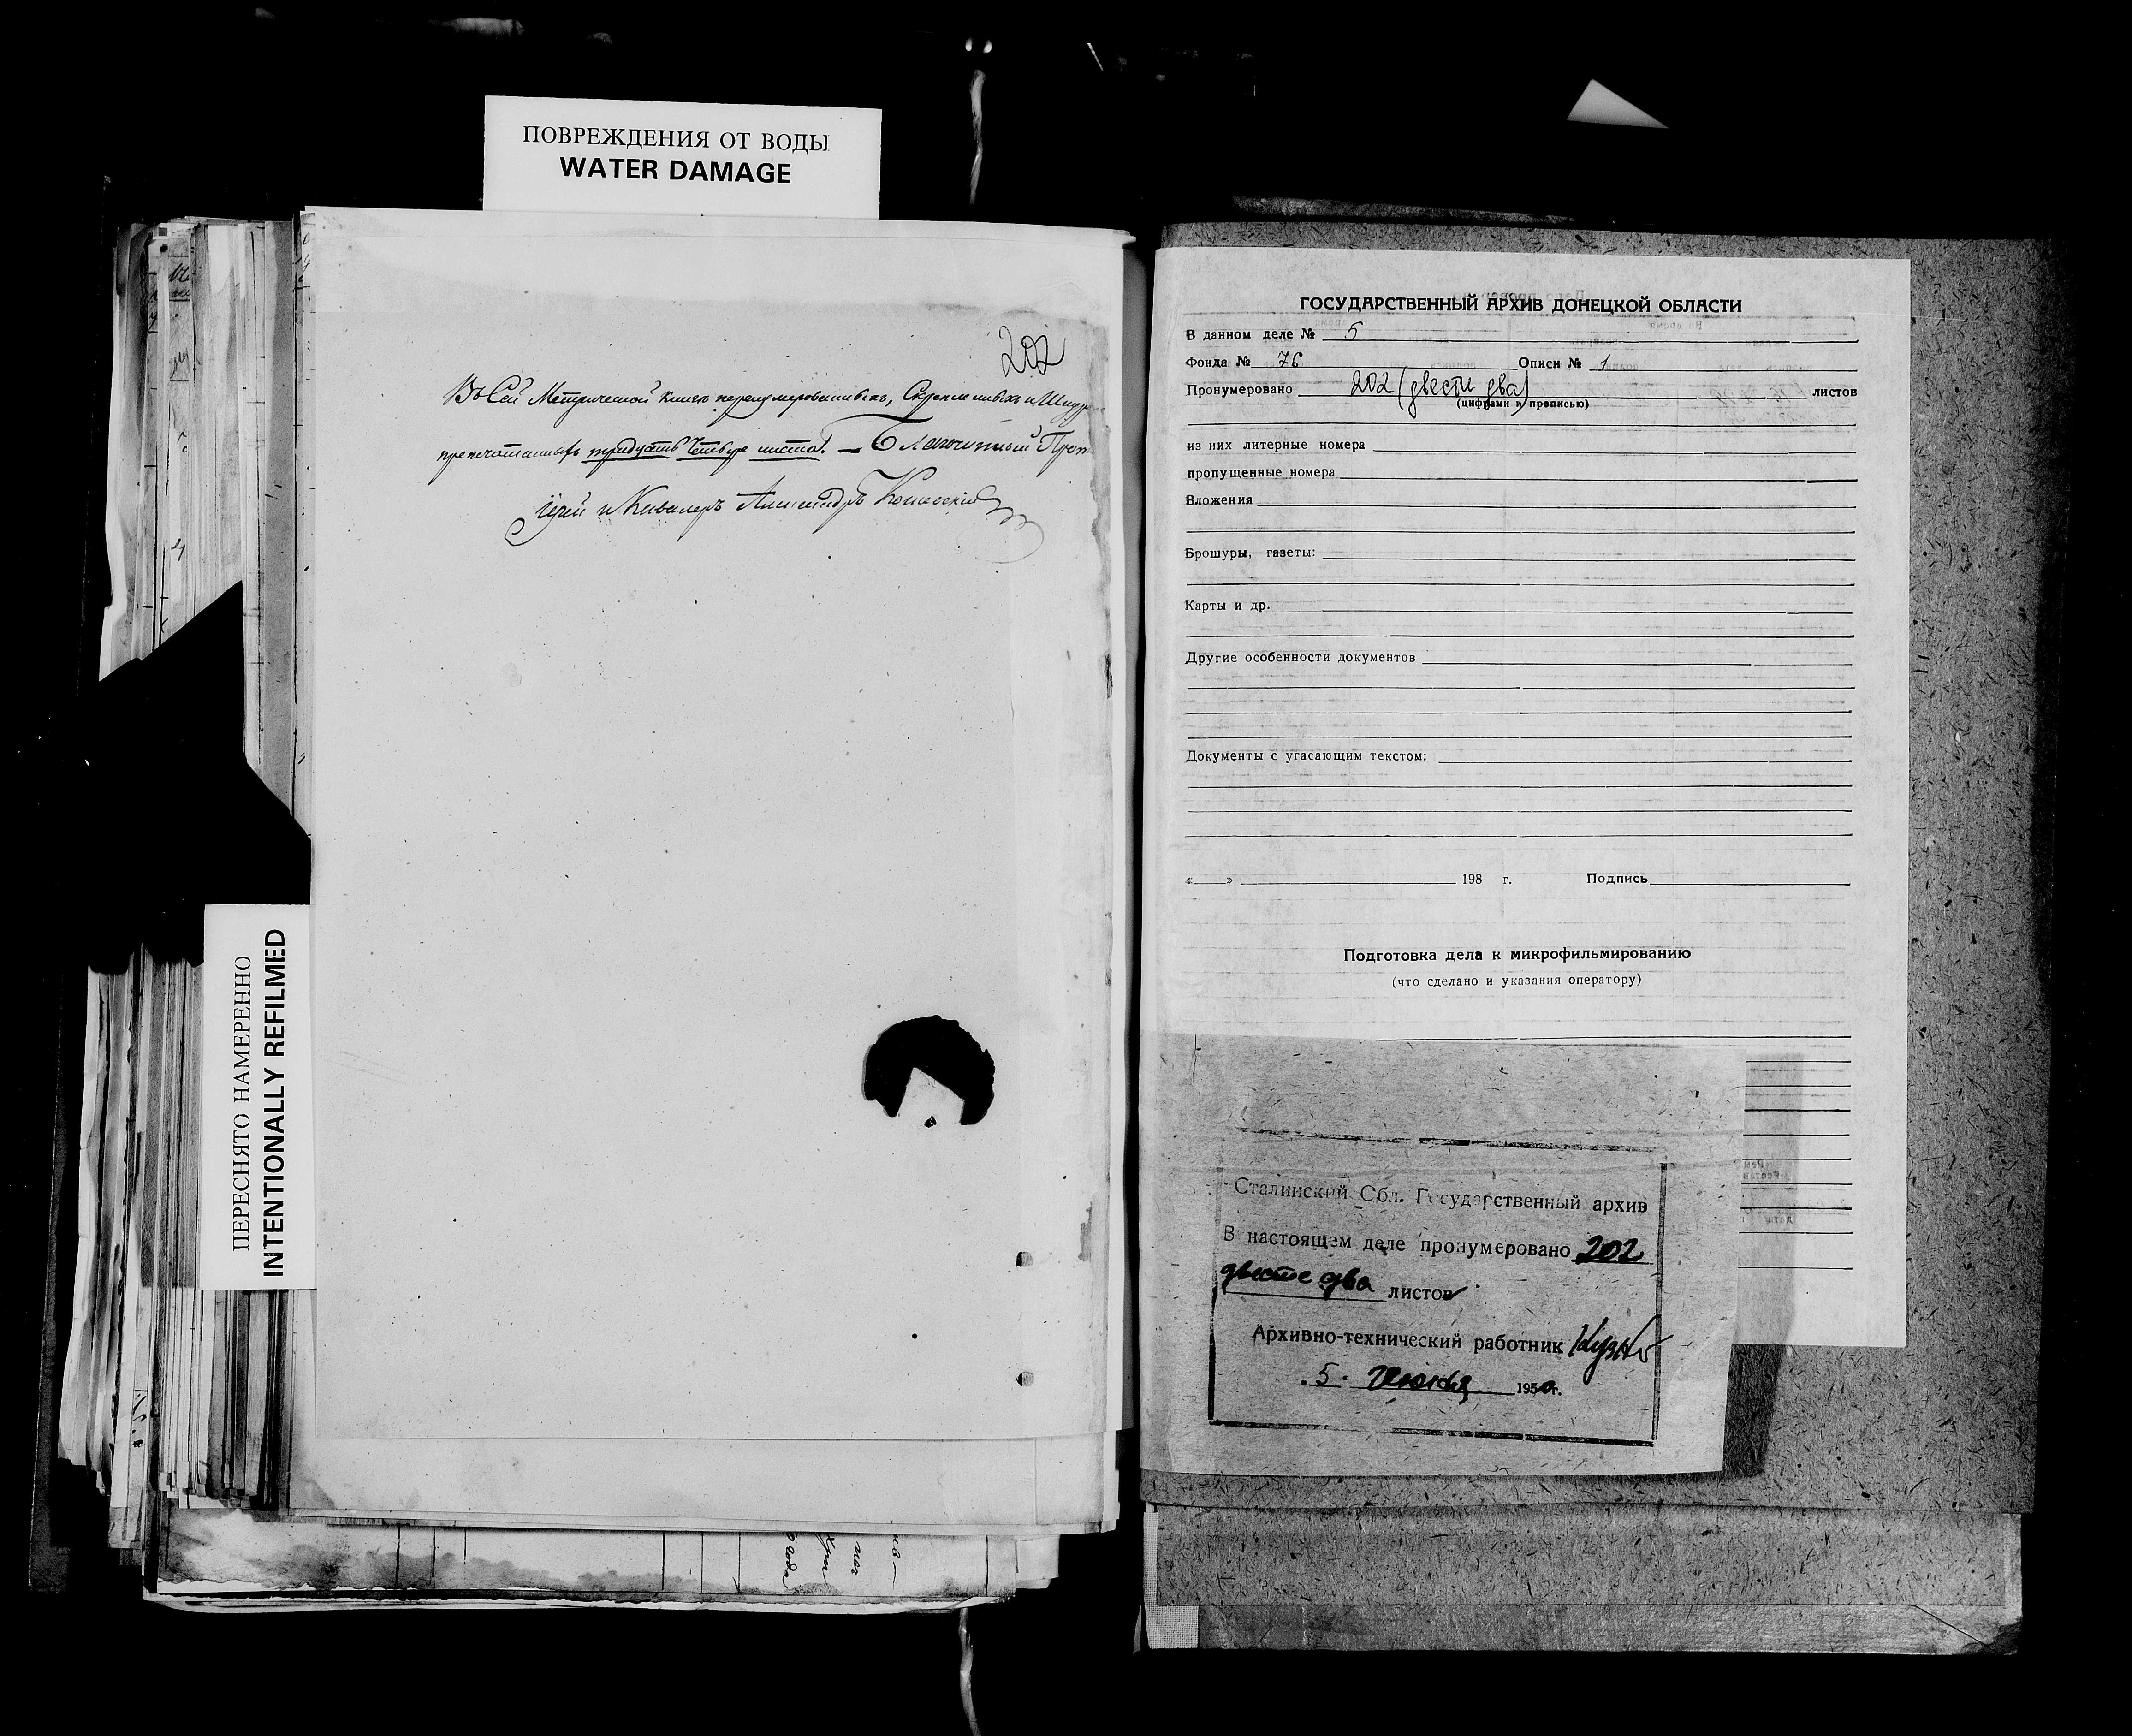 ПОВРЕЖДЕНИЯ ОТ ВОДЫ
WATER DAMAGE
202
Въ Сей Метрической книгѣ перенумерованныхъ, Скрепленныхъ и Шнур
препечатанныхъ тридцать Четыре листа. — Благочинный Прот
іерей и Кавалеръ Александръ
ПЕРЕСНЯТО НАМЕРЕННО
INTENTIONALLY REFILMED
ГОСУДАРСТВЕННЫЙ АРХИВ ДОНЕЦКОЙ ОБЛАСТИ
В данном деле № 5
Фонда № 76 Описи № 1
Пронумеровано 202 (двести два) листов
(цифрами и прописью)
из них литерные номера
пропущенные номера
Вложения
Брошуры, газеты:
Карты и др.
Другие особенности документов
Документы с угасающим текстом:
« » 198 г. Подпись
Подготовка дела к микрофильмированию
(что сделано и указания оператору)
Сталинский Обл. Государственный архив
В настоящем деле пронумеровано 202
двести два листов
Архивно-технический работник
5 1950 г.